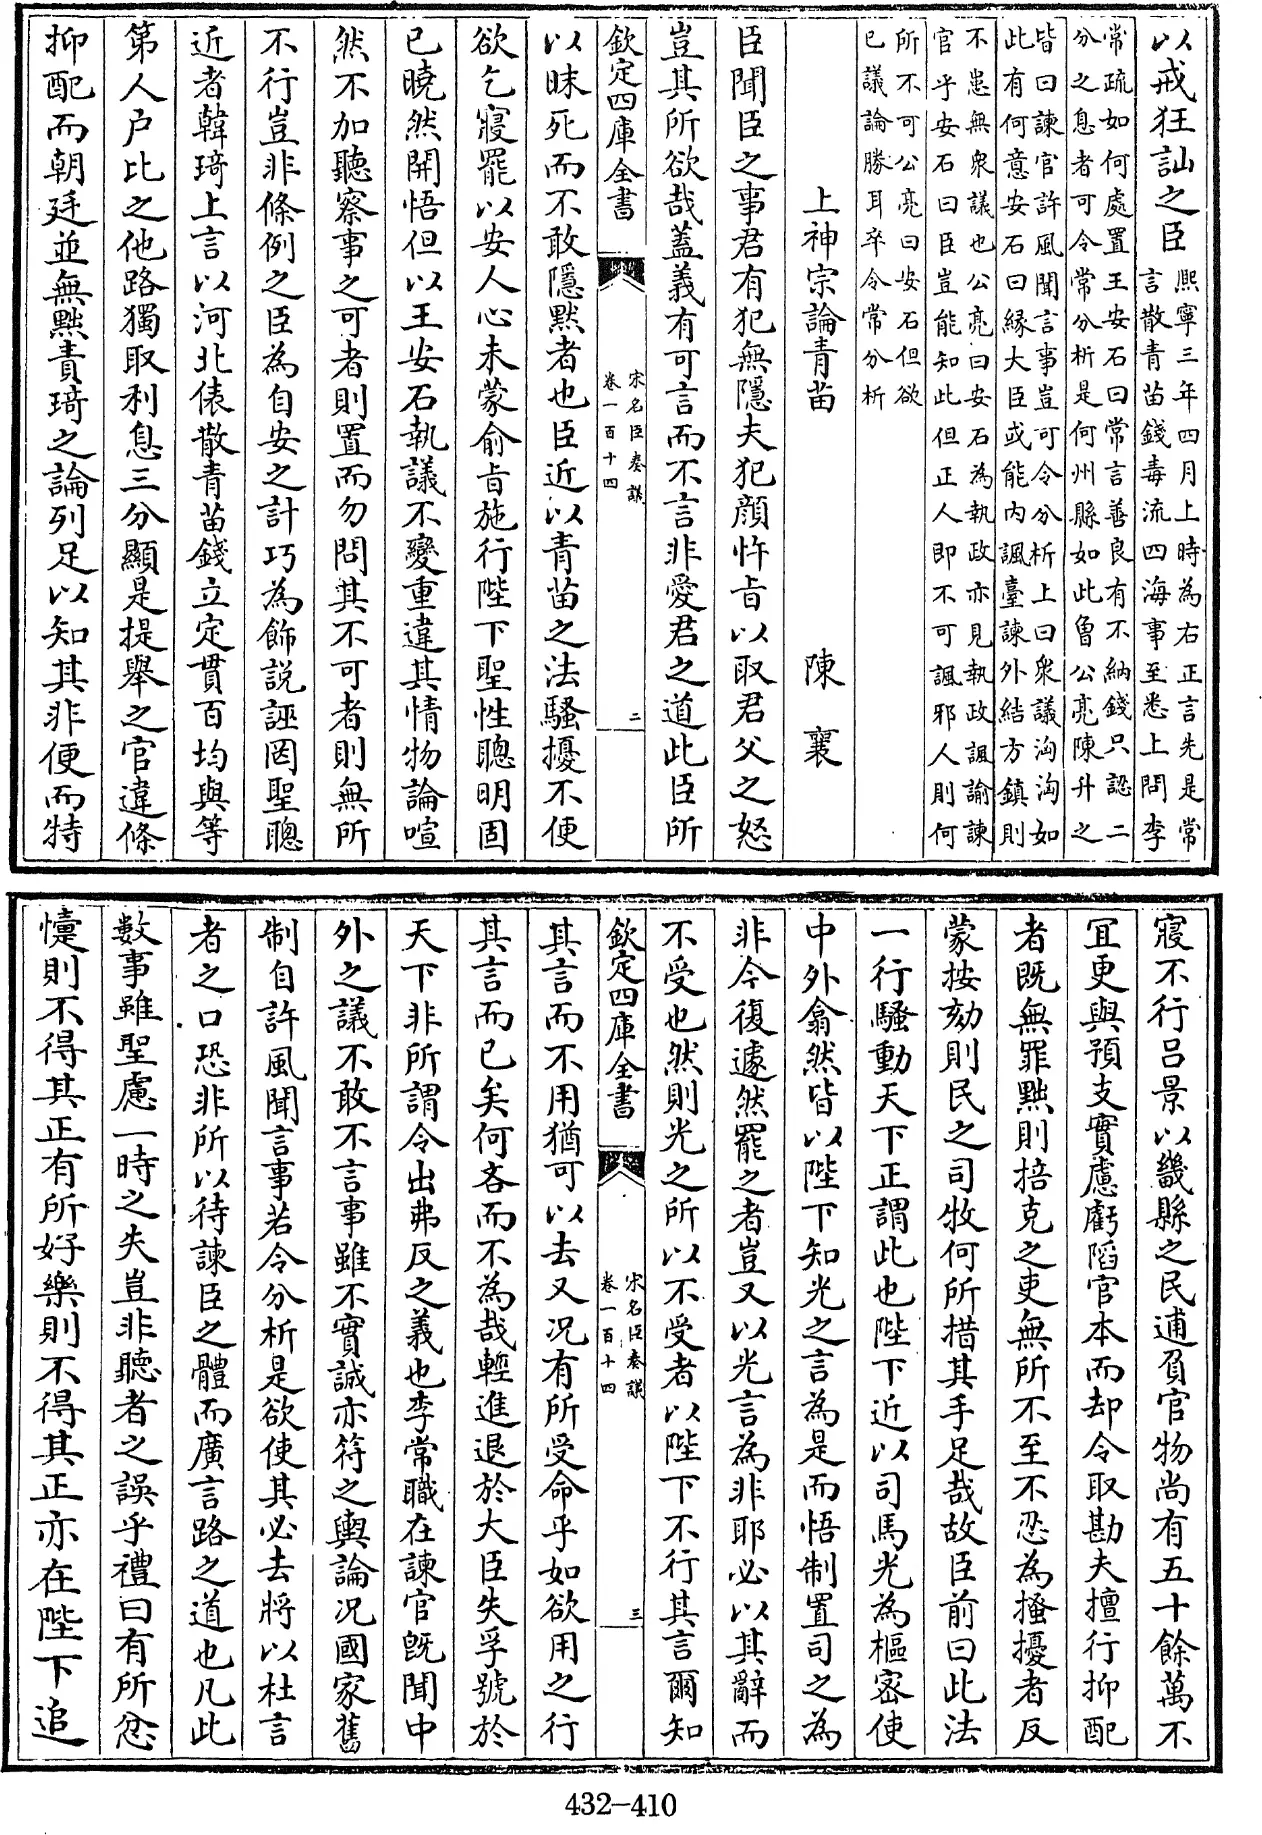 以戒狂訕之臣熙寧三年四月上時為右正言先是常
言散青苗錢毒流四海事至悉上問李
常疏如何處置王安石曰常言善良有不納錢只認二
分之息者可令常分析是何州縣如此曾公亮陳升之
皆曰諫官許風聞言事豈可令分析上曰衆議洶洶如
此有何意安石曰縁大臣或能内諷臺諫外結方鎮則
不患無衆議也公亮曰安石為執政亦見執政諷諭諫
官乎安石曰臣豈能知此但正人即不可諷邪人則何
所不可公亮曰安石但欲
已議論勝耳卒令常分析
上神宗論青苗　　　陳襄
臣聞臣之事君有犯無隱夫犯顔忤旨以取君父之怒
豈其所欲哉蓋義有可言而不言非愛君之道此臣所
欽定四庫全書　宋名臣奏議　卷一百十四　二
以昧死而不敢隱黙者也臣近以青苗之法騷擾不便
欲乞寢罷以安人心未蒙俞旨施行陛下聖性聰明固
已曉然開悟但以王安石執議不變重違其情物論喧
然不加聽察事之可者則置而勿問其不可者則無所
不行豈非條例之臣為自安之計巧為飾説誣罔聖聰
近者韓琦上言以河北俵散青苗錢立定貫百均與等
第人户比之他路獨取利息三分顯是提舉之官違條
抑配而朝廷並無黜責琦之論列足以知其非便而特
寢不行吕景以畿縣之民逋負官物尚有五十餘萬不
宜更與預支實慮虧䧟官本而却令取勘夫擅行抑配
者既無罪黜則掊克之吏無所不至不忍為搔擾者反
蒙按劾則民之司牧何所措其手足哉故臣前曰此法
一行騷動天下正謂此也陛下近以司馬光為樞密使
中外翕然皆以陛下知光之言為是而悟制置司之為
非今復遽然罷之者豈又以光言為非耶必以其辭而
不受也然則光之所以不受者以陛下不行其言爾知
欽定四庫全書　宋名臣奏議　卷一百十四　三
其言而不用猶可以去又况有所受命乎如欲用之行
其言而已矣何吝而不為哉輕進退於大臣失孚號於
天下非所謂令出弗反之義也李常職在諫官既聞中
外之議不敢不言事雖不實誠亦符之輿論况國家舊
制自許風聞言事若令分析是欲使其必去將以杜言
者之口恐非所以待諫臣之體而廣言路之道也凡此
數事雖聖慮一時之失豈非聽者之誤乎禮曰有所忿
懥則不得其正有所好樂則不得其正亦在陛下追
432-410